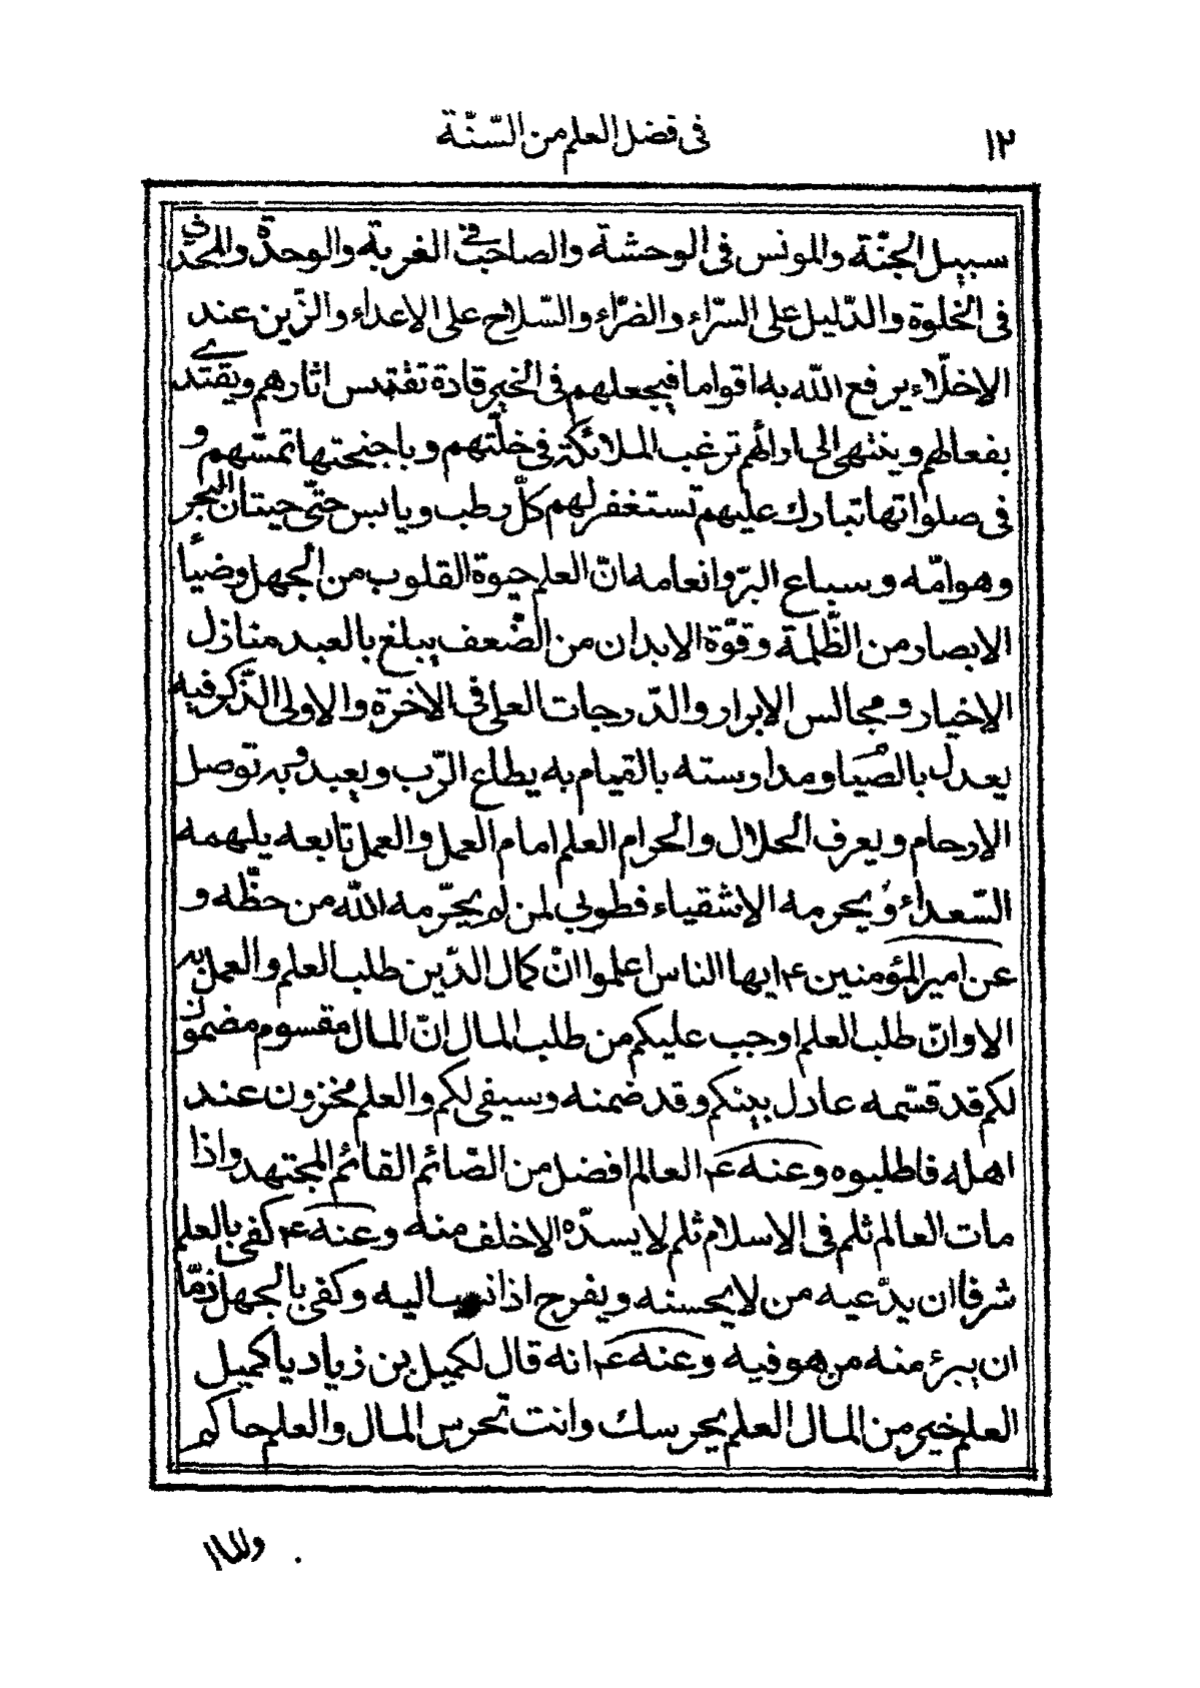 ١٢
فى فضل العلم من السّنّة
سبيل الجنّة والمونس فى الوحشة والصاحب فى الغربة والوحدة والمحدّث
فى الخلوة والدّليل على السّراء والضرّاء والسّلاح على الاعداء والزّين عند
الاخلّاء يرفع اللّه به اقواما فيجعلهم فى الخير قادة تقتبس اثارهم ويقتدى
بفعالهم وينتهى الى ارائهم ترغب الملائكة فى خلّتهم وباجنحتها تمسّهم و
فى صلواتها تبارك عليهم تستغفر لهم كلّ رطب ويابس حتّى حيتان البحر
وهوامّه وسباع البرّ وانعامه انّ العلم حيوة القلوب من الجهل وضياء
الابصار من الظّلمة وقوّة الابدان من الضّعف يبلغ بالعبد منازل
الاخيار ومجالس الابرار والدّرجات العلى فى الاخرة والاولى الذّكر فيه
يعدل بالصّيام ومدارسته بالقيام به يطاع الرّب ويعبد وبه توصل
الارحام ويعرف الحلال والحرام العلم امام العمل والعمل تابعه يلهمه
السّعداء ويحرمه الاشقياء فطوبى لمن لم يحرّمه اللّه من حظّه و
عن امير المؤمنين ع ايها الناس اعلموا انّ كمال الدّين طلب العلم والعمل به
الا وانّ طلب العلم اوجب عليكم من طلب المال انّ المال مقسوم مضمون
لكم قد قسّمه عادل بينكم وقد ضمنه وسيفى لكم والعلم مخزون عند
اهله فاطلبوه وعنه ع العالم افضل من الصّائم القائم المجتهد واذا
مات العالم ثلم فى الاسلام ثلم لا يسدّه الا خلف منه وعنه ع كفى بالعلم
شرفا ان يدّعيه من لا يحسنه ويفرح اذا نسب اليه وكفى بالجهل ذمّا
ان يبرء منه من هو فيه وعنه ع انه قال لكميل بن زياد يا كميل
العلم خير من المال العلم يحرسك وانت تحرس المال والعلم حاكم
والمال